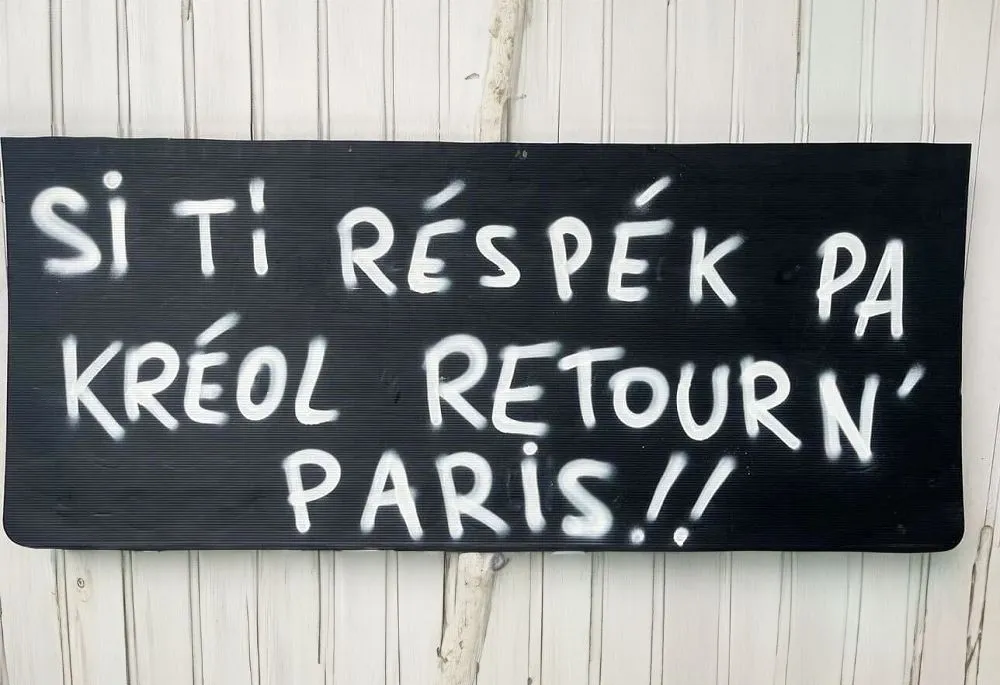 Si Ti RÉSPÉK PA
KRÉOL RETOURN'
PARiS!!